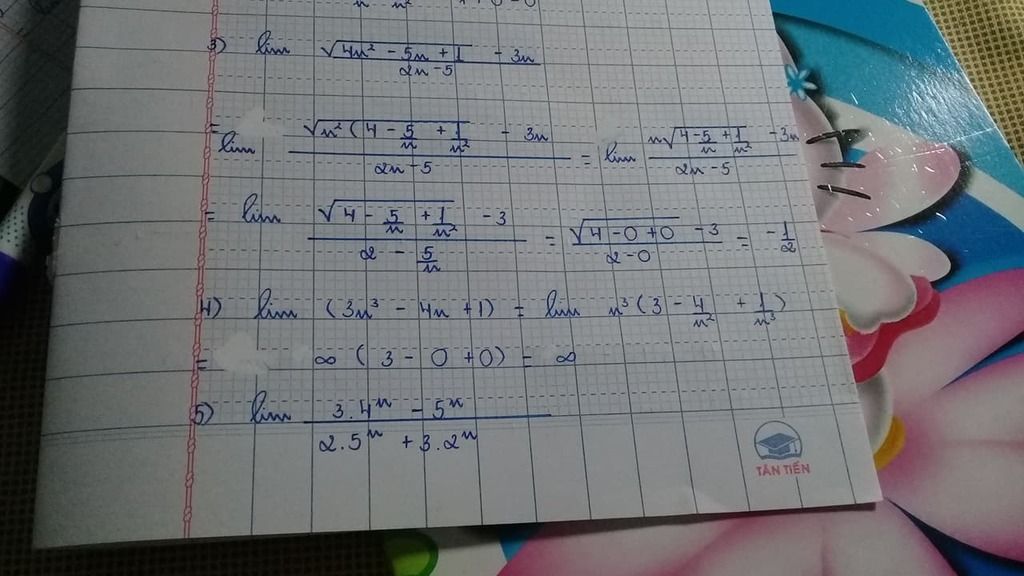 3) lim (√(4n² - 5n + 1) - 3n) / (2n - 5)
= lim (√(n² (4 - 5/n + 1/n²) - 3n) / (2n - 5) = lim (n√(4 - 5/n + 1/n²) - 3n) / (2n - 5)
= lim (√(4 - 5/n + 1/n²) - 3) / (2 - 5/n) = (√(4 - 0 + 0) - 3) / (2 - 0) = -1/2
4) lim (3n³ - 4n + 1) = lim n³ (3 - 4/n² + 1/n³)
= ∞ (3 - 0 + 0) = ∞
5) lim (3.4ⁿ - 5ⁿ) / (2.5ⁿ + 3.2ⁿ)
TÂN TIẾN